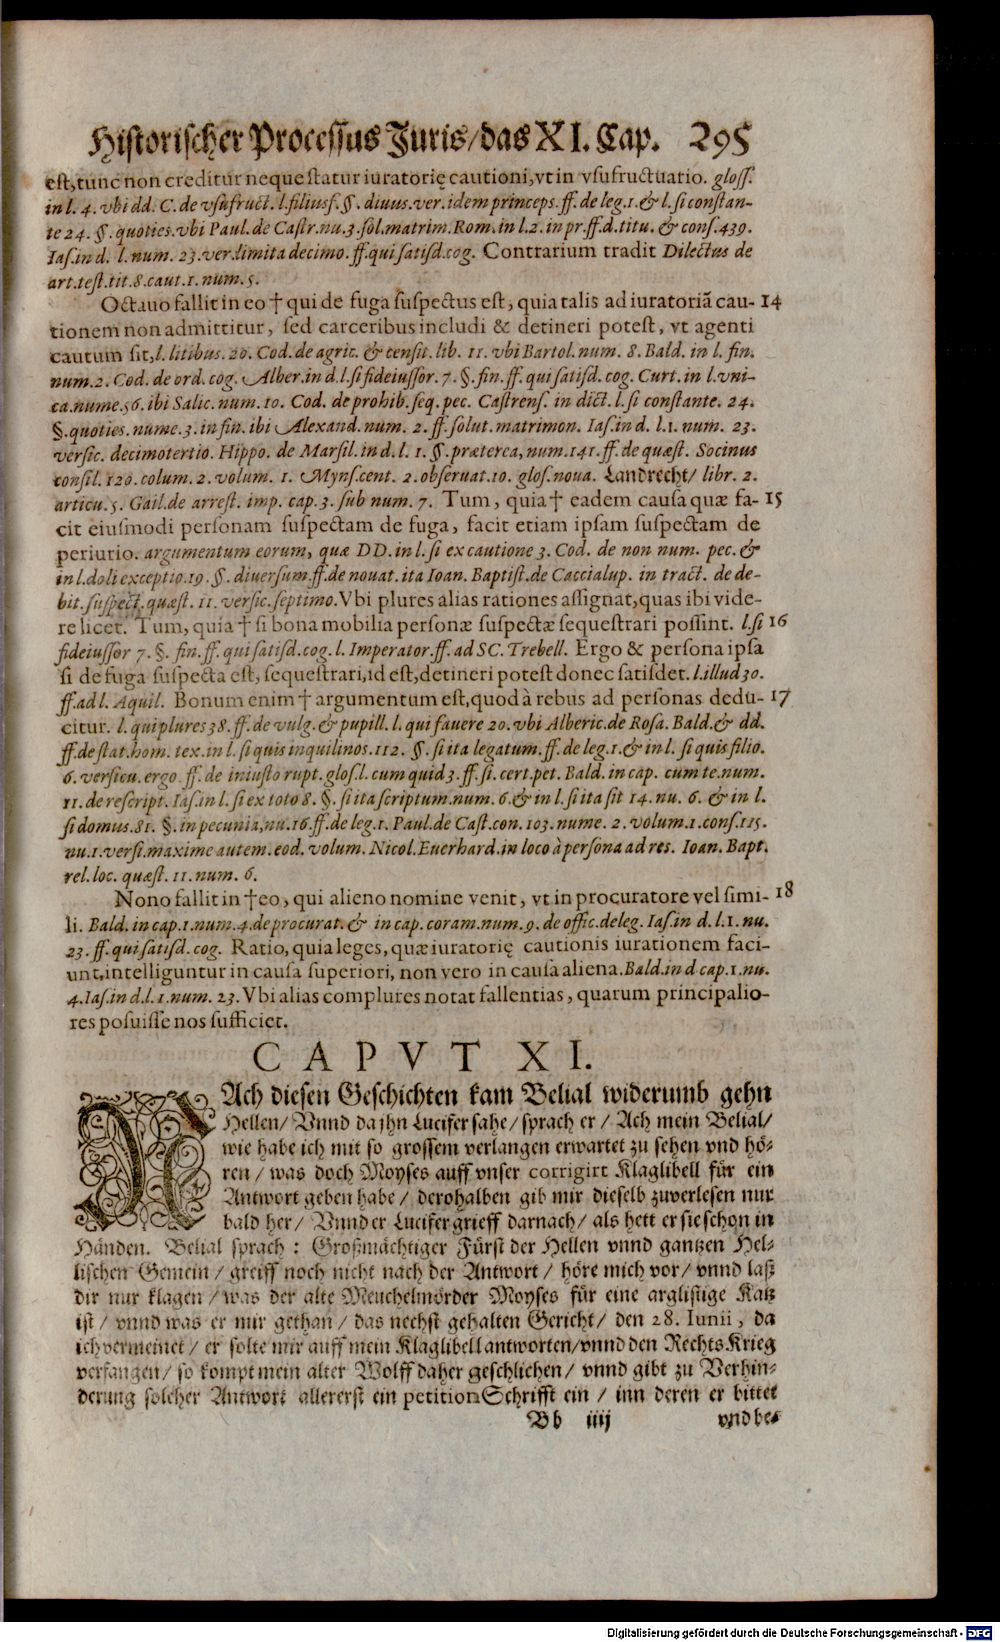 Historischer Processus Juris/das XI. Cap. 295
est, tunc non creditur neque statur iuratorię cautioni, vt in vsufructuario. gloss.
in l. 4. vbi dd. C. de vsufruct. l. filiusf. §. diuus. ver. idem princeps. ff. de leg. 1. & l. si constan-
te 24. §. quoties. vbi Paul. de Castr. nu. 3. sol. matrim. Rom. in l. 2. in pr. ff. d. titu. & cons. 439.
Ias. in d. l. num. 23. ver. limita decimo. ff. qui satisd. cog. Contrarium tradit Dilectus de
art. test. tit. 8. caut. 1. num. 5.
Octauo fallit in eo † qui de fuga suspectus est, quia talis ad iuratoriã cau- 14
tionem non admittitur, sed carceribus includi & detineri potest, vt agenti
cautum sit, l. litibus. 20. Cod. de agric. & censit. lib. 11. vbi Bartol. num. 8. Bald. in l. fin.
num. 2. Cod. de ord. cog. Alber. in d. l. si fideiussor. 7. §. fin. ff. qui satisd. cog. Curt. in l. vni-
ca. nume. 56. ibi Salic. num. 10. Cod. de prohib. seq. pec. Castrens. in dict. l. si constante. 24.
§. quoties. nume. 3. in fin. ibi Alexand. num. 2. ff. solut. matrimon. Ias. in d. l. 1. num. 23.
versic. decimotertio. Hippo. de Marsil. in d. l. 1. §. præterea, num. 141. ff. de quæst. Socinus
consil. 120. colum. 2. volum. 1. Myns. cent. 2. obseruat. 10. glos. noua. Landrecht/ libr. 2.
articu. 5. Gail. de arrest. imp. cap. 3. sub num. 7. Tum, quia † eadem causa quæ fa- 15
cit eiusmodi personam suspectam de fuga, facit etiam ipsam suspectam de
periurio. argumentum eorum, quæ DD. in l. si ex cautione 3. Cod. de non num. pec. &
in l. doli exceptio. 19. §. diuersum. ff. de nouat. ita Ioan. Baptist. de Caccialup. in tract. de de-
bit. suspect. quæst. 11. versic. septimo. Vbi plures alias rationes assignat, quas ibi vide-
re licet. Tum, quia † si bona mobilia personæ suspectæ sequestrari possint. l. si 16
fideiussor 7. §. fin. ff. qui satisd. cog. l. Imperator. ff. ad SC. Trebell. Ergo & persona ipsa
si de fuga suspecta est, sequestrari, id est, detineri potest donec satisdet. l. illud 30.
ff. ad l. Aquil. Bonum enim † argumentum est, quod à rebus ad personas dedu- 17
citur. l. qui plures 38. ff. de vulg. & pupill. l. qui fauere 20. vbi Alberic. de Rosa. Bald. & dd.
ff. de stat. hom. tex. in l. si quis inquilinos. 112. §. si ita legatum. ff. de leg. 1. & in l. si quis filio.
6. versicu. ergo. ff. de iniusto rupt. glos. l. cum quid 3. ff. si. cert. pet. Bald. in cap. cum te. num.
11. de rescript. Ias. in l. si ex toto 8. §. si ita scriptum. num. 6. & in l. si ita sit 14. nu. 6. & in l.
si domus. 81. §. in pecunia, nu. 16. ff. de leg. 1. Paul. de Cast. con. 103. nume. 2. volum. 1. cons. 115.
nu. 1. versi. maxime autem. eod. volum. Nicol. Euerhard. in loco à persona ad res. Ioan. Bapt.
rel. loc. quæst. 11. num. 6.
Nono fallit in † eo, qui alieno nomine venit, vt in procuratore vel simi- 18
li. Bald. in cap. 1. num. 4. de procurat. & in cap. coram. num. 9. de offic. deleg. Ias. in d. l. 1. nu.
23. ff. qui satisd. cog. Ratio, quia leges, quæ iuratorię cautionis iurationem faci-
unt, intelliguntur in causa superiori, non vero in causa aliena. Bald. in d cap. 1. nu.
4. Ias. in d. l. 1. num. 23. Vbi alias complures notat fallentias, quarum principalio-
res posuisse nos sufficiet.
CAPVT XI.
NAch diesen Geschichten kam Belial widerumb gehn
Hellen/ Vnnd da jhn Lucifer sahe/ sprach er/ Ach mein Belial/
wie habe ich mit so grossem verlangen erwartet zu sehen vnd hö-
ren/ was doch Moyses auff vnser corrigirt Klaglibell für ein
Antwort geben habe/ derohalben gib mir dieselb zuverlesen nur
bald her/ Vnnd er Lucifer grieff darnach/ als hett er sie schon in
Händen. Belial sprach: Großmächtiger Fürst der Hellen vnnd gantzen Hel-
lischen Gemein/ greiff noch nicht nach der Antwort/ höre mich vor/ vnnd laß
dir nur klagen/ was der alte Meuchelmörder Moyses für eine arglistige Katz
ist/ vnnd was er mir gethan/ das nechst gehalten Gericht/ den 28. Iunii, da
ich vermeinet/ er solte mir auff mein Klaglibell antworten/ vnnd den Rechts Krieg
verfangen/ so kompt mein alter Wolff daher geschlichen/ vnnd gibt zu Verhin-
derung solcher Antwort allererst ein petition Schrifft ein/ inn deren er bittet
Bb iiij vnd be-
Digitalisierung gefördert durch die Deutsche Forschungsgemeinschaft - DFG